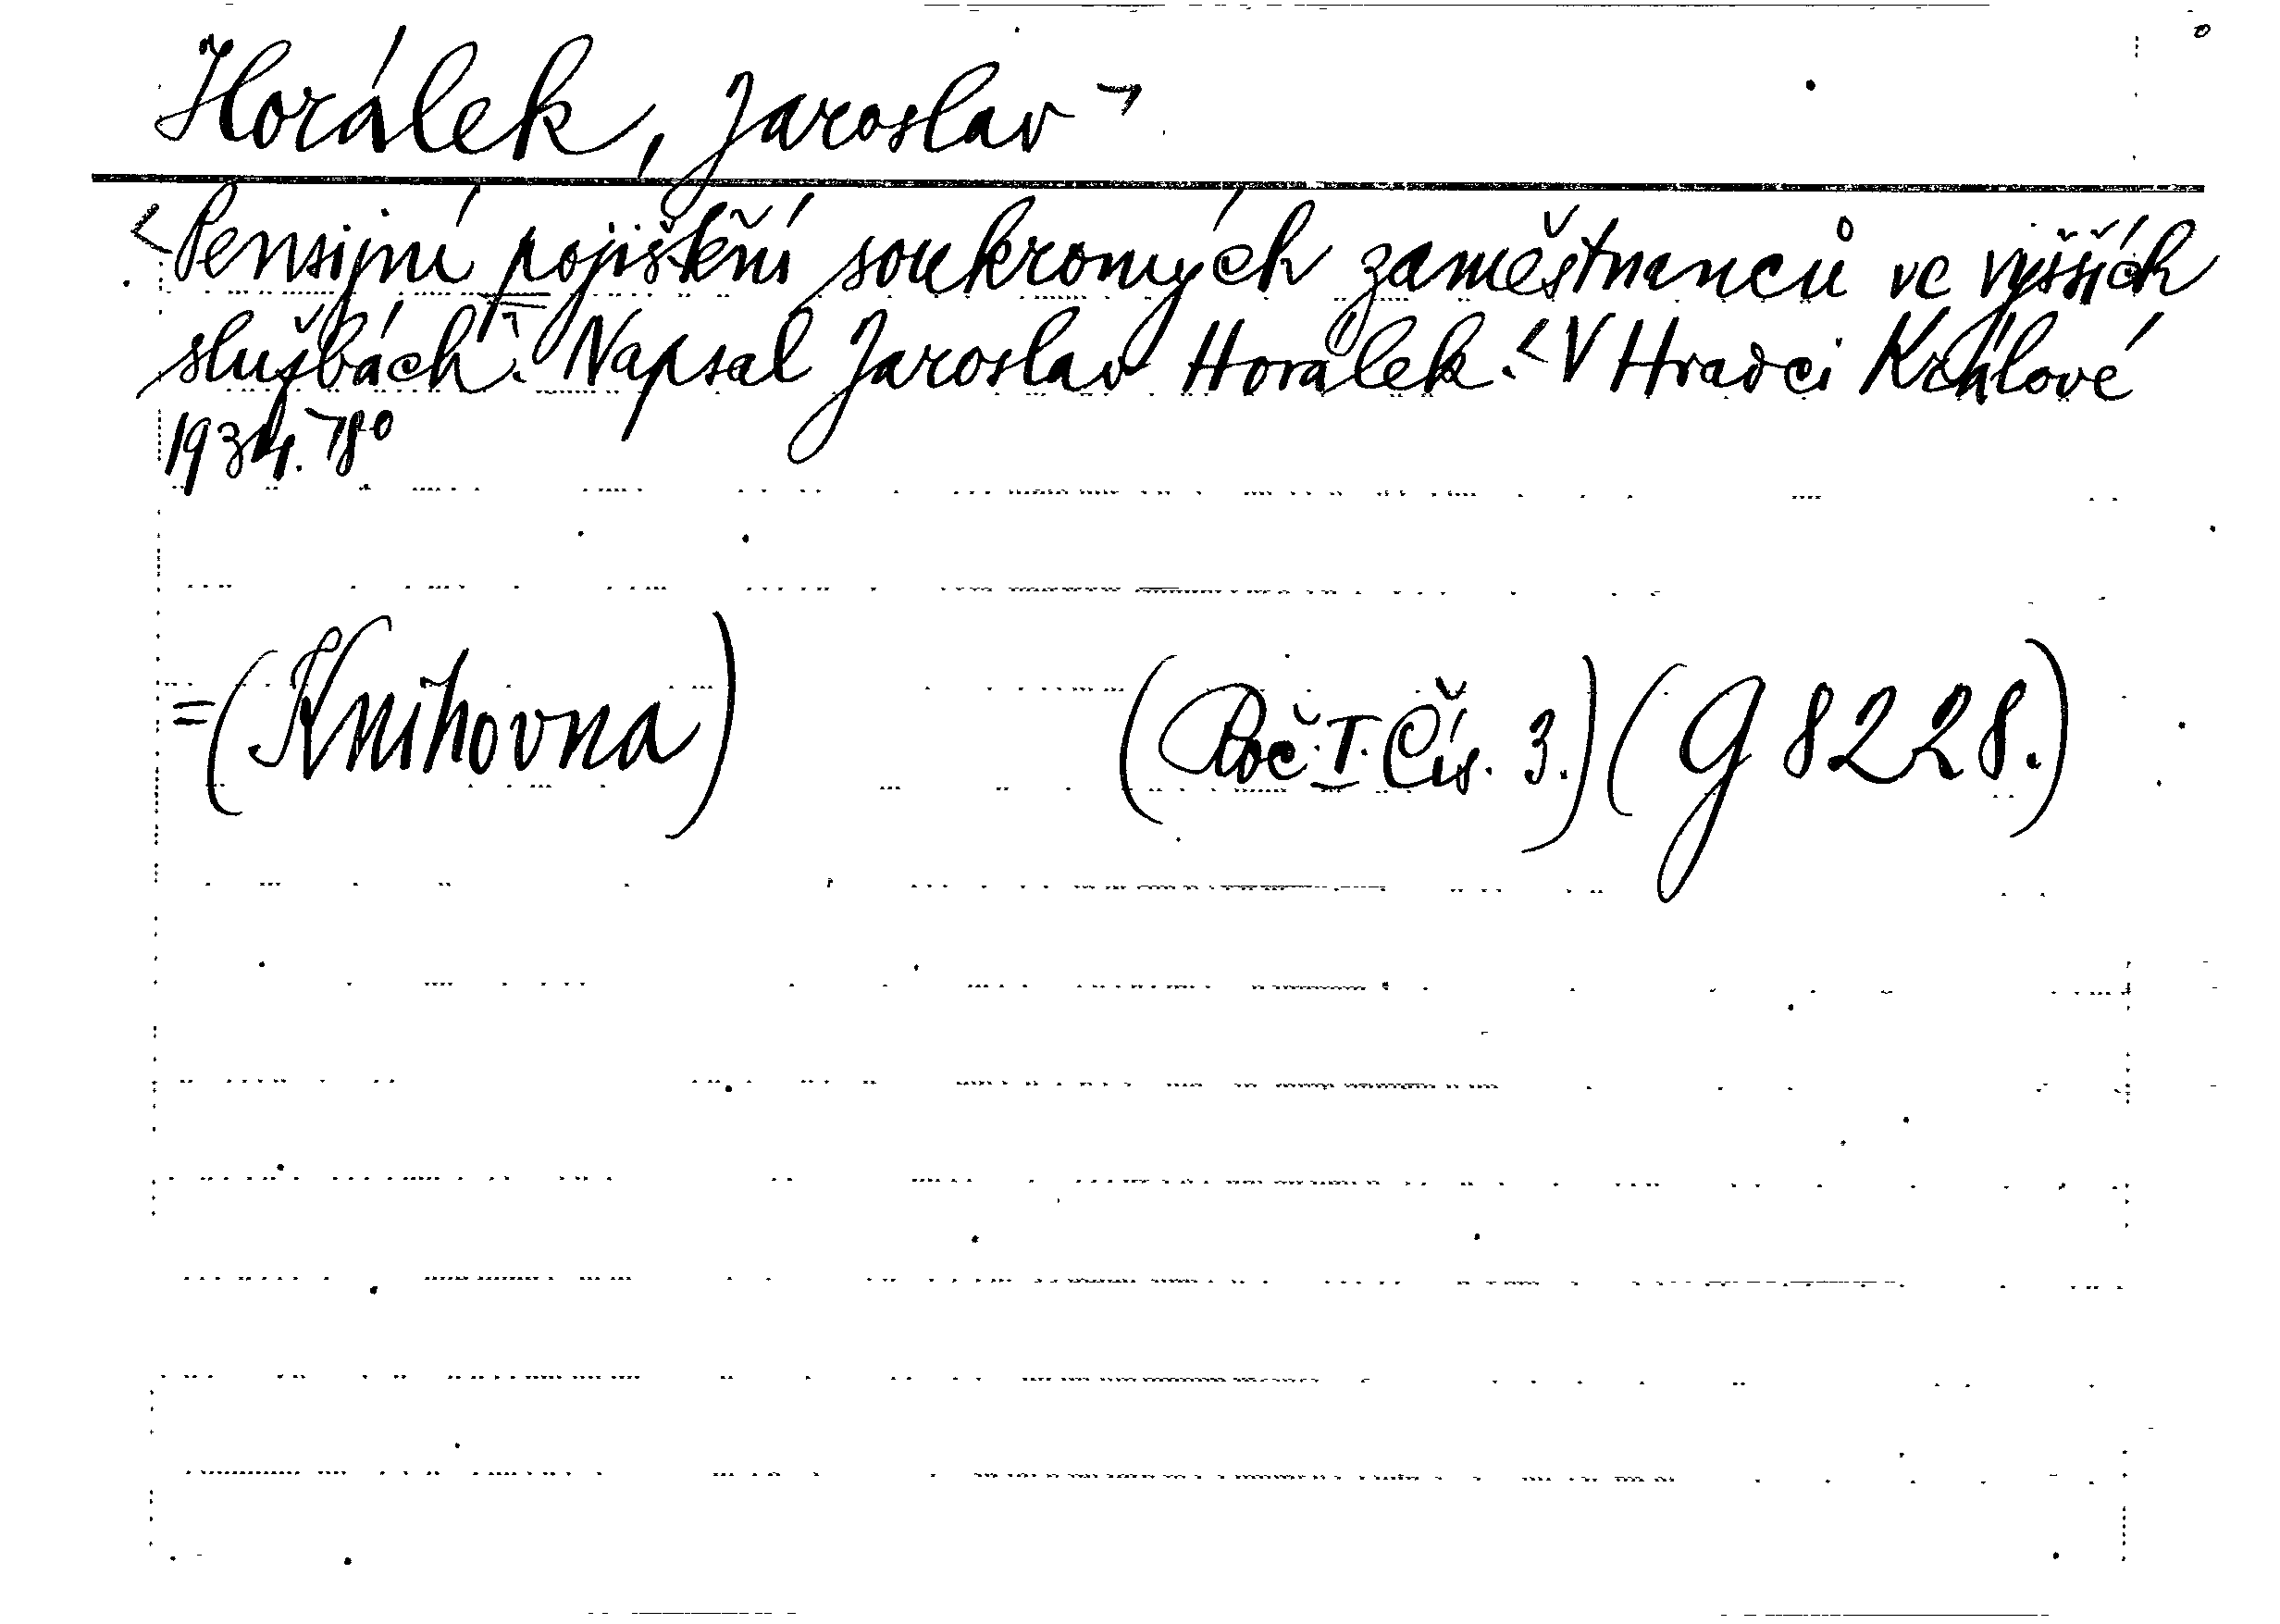 Horálek, Jaroslav
Pensijní pojištění soukromých zaměstnanců ve vyšších
službách. Napsal Jaroslav Horálek. V Hradci Králové
1934. 8°
=(Knihovna) (Roč. I. Čís. 3.) (G 8228.)